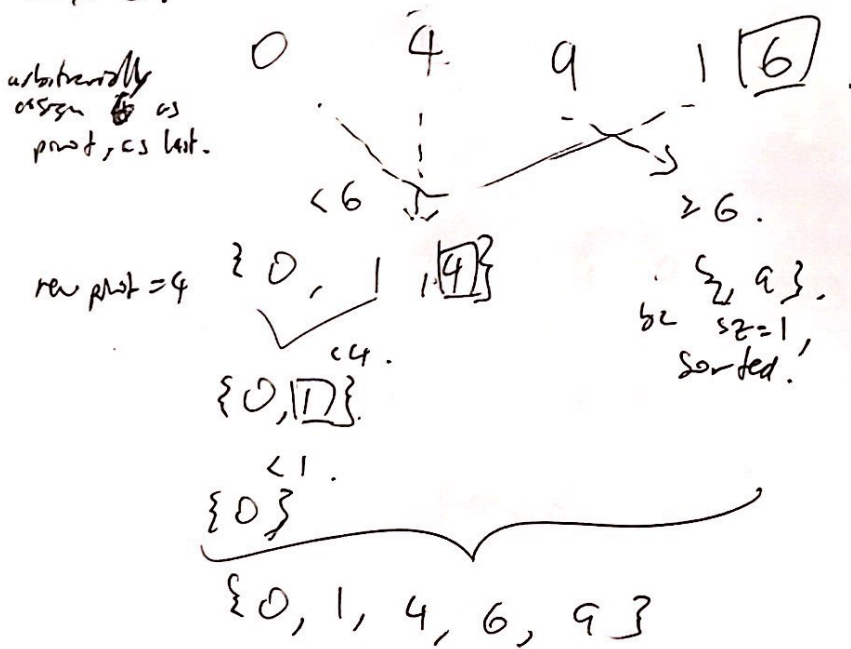 0 4 9 1 6
arbitrarily
assign 6 as
pivot, as last.
< 6 ≥ 6.
new pivot = 4 { 0, 1, 4 } {, 9 }.
bc sz=1,
sorted!
< 4.
{ 0, 1 }.
< 1.
{ 0 }
{ 0, 1, 4, 6, 9 }